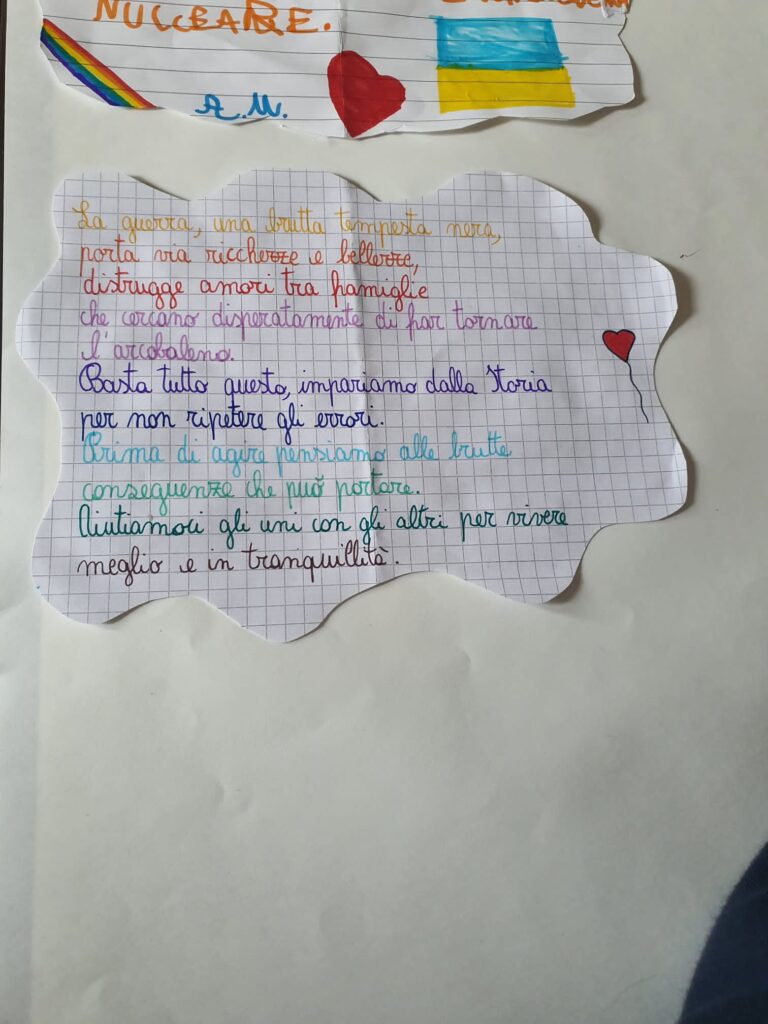 NUCLEARE.
A.M.
La guerra, una brutta tempesta nera,
porta via ricchezze e bellezze,
distrugge amori tra famiglie
che cercano disperatamente di far tornare
l'arcobaleno.
Basta tutto questo, impariamo dalla Storia
per non ripetere gli errori.
Prima di agire pensiamo alle brutte
conseguenze che può portare.
Aiutiamoci gli uni con gli altri per vivere
meglio e in tranquillità.